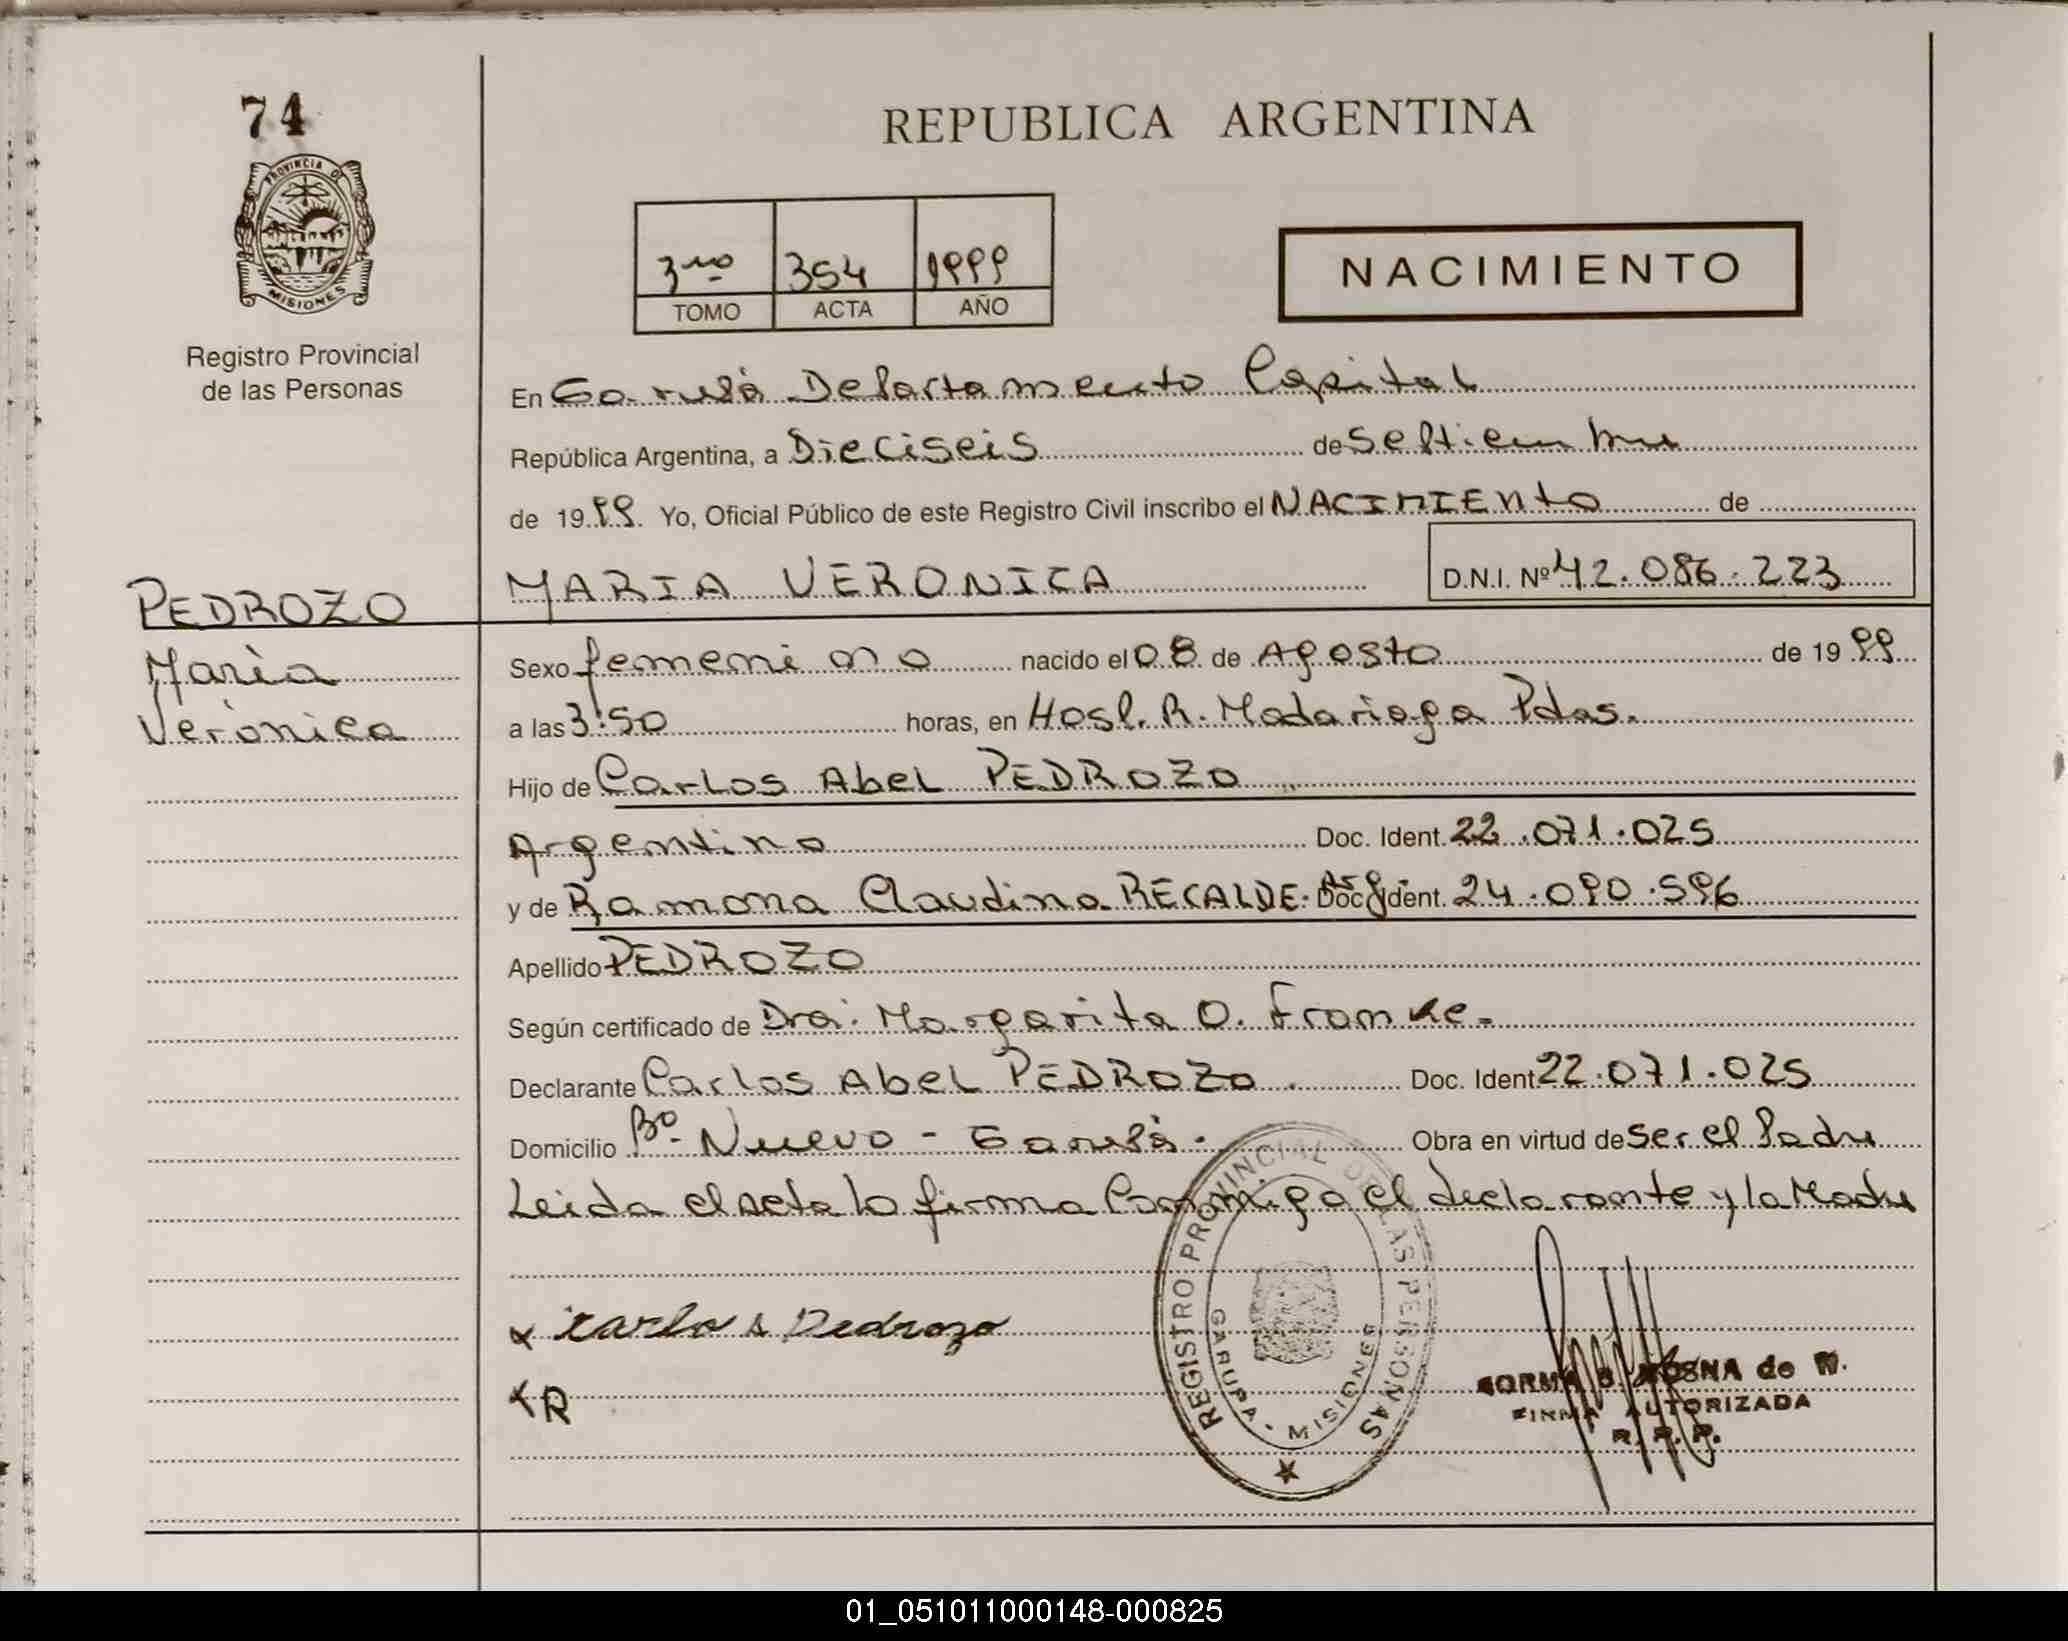 74
PROVINCIA DE
MISIONES
Registro Provincial
de las Personas
REPUBLICA ARGENTINA
3ro 354 1999
TOMO ACTA AÑO
NACIMIENTO
En Garupá Departamento Capital
República Argentina, a Dieciseis de Septiembre
de 1999. Yo, Oficial Público de este Registro Civil inscribo el NACIMIENTO de
MARIA VERONICA D.N.I. Nº 42.086.223
PEDROZO
María
Verónica
Sexo femenino nacido el 08 de Agosto de 1999
a las 3:50 horas, en Hosp. R. Madariaga Pdas.
Hijo de Carlos Abel PEDROZO
Argentino Doc. Ident. 22.071.025
y de Ramona Claudina RECALDE. Arg. Doc. Ident. 24.090.596
Apellido PEDROZO
Según certificado de Dra. Margarita O. Franke.
Declarante Carlos Abel PEDROZO. Doc. Ident 22.071.025
Domicilio Bº. Nuevo - Garupá. Obra en virtud de ser el Padre
Leida el acta la firma Conmigo el declarante y la Madre
x Karlo A Pedrozo
x R
REGISTRO PROVINCIAL DE LAS PERSONAS
GARUPA - MISIONES
NORMA B. de W.
FIRMA AUTORIZADA
R. P. P.
01_051011000148-000825